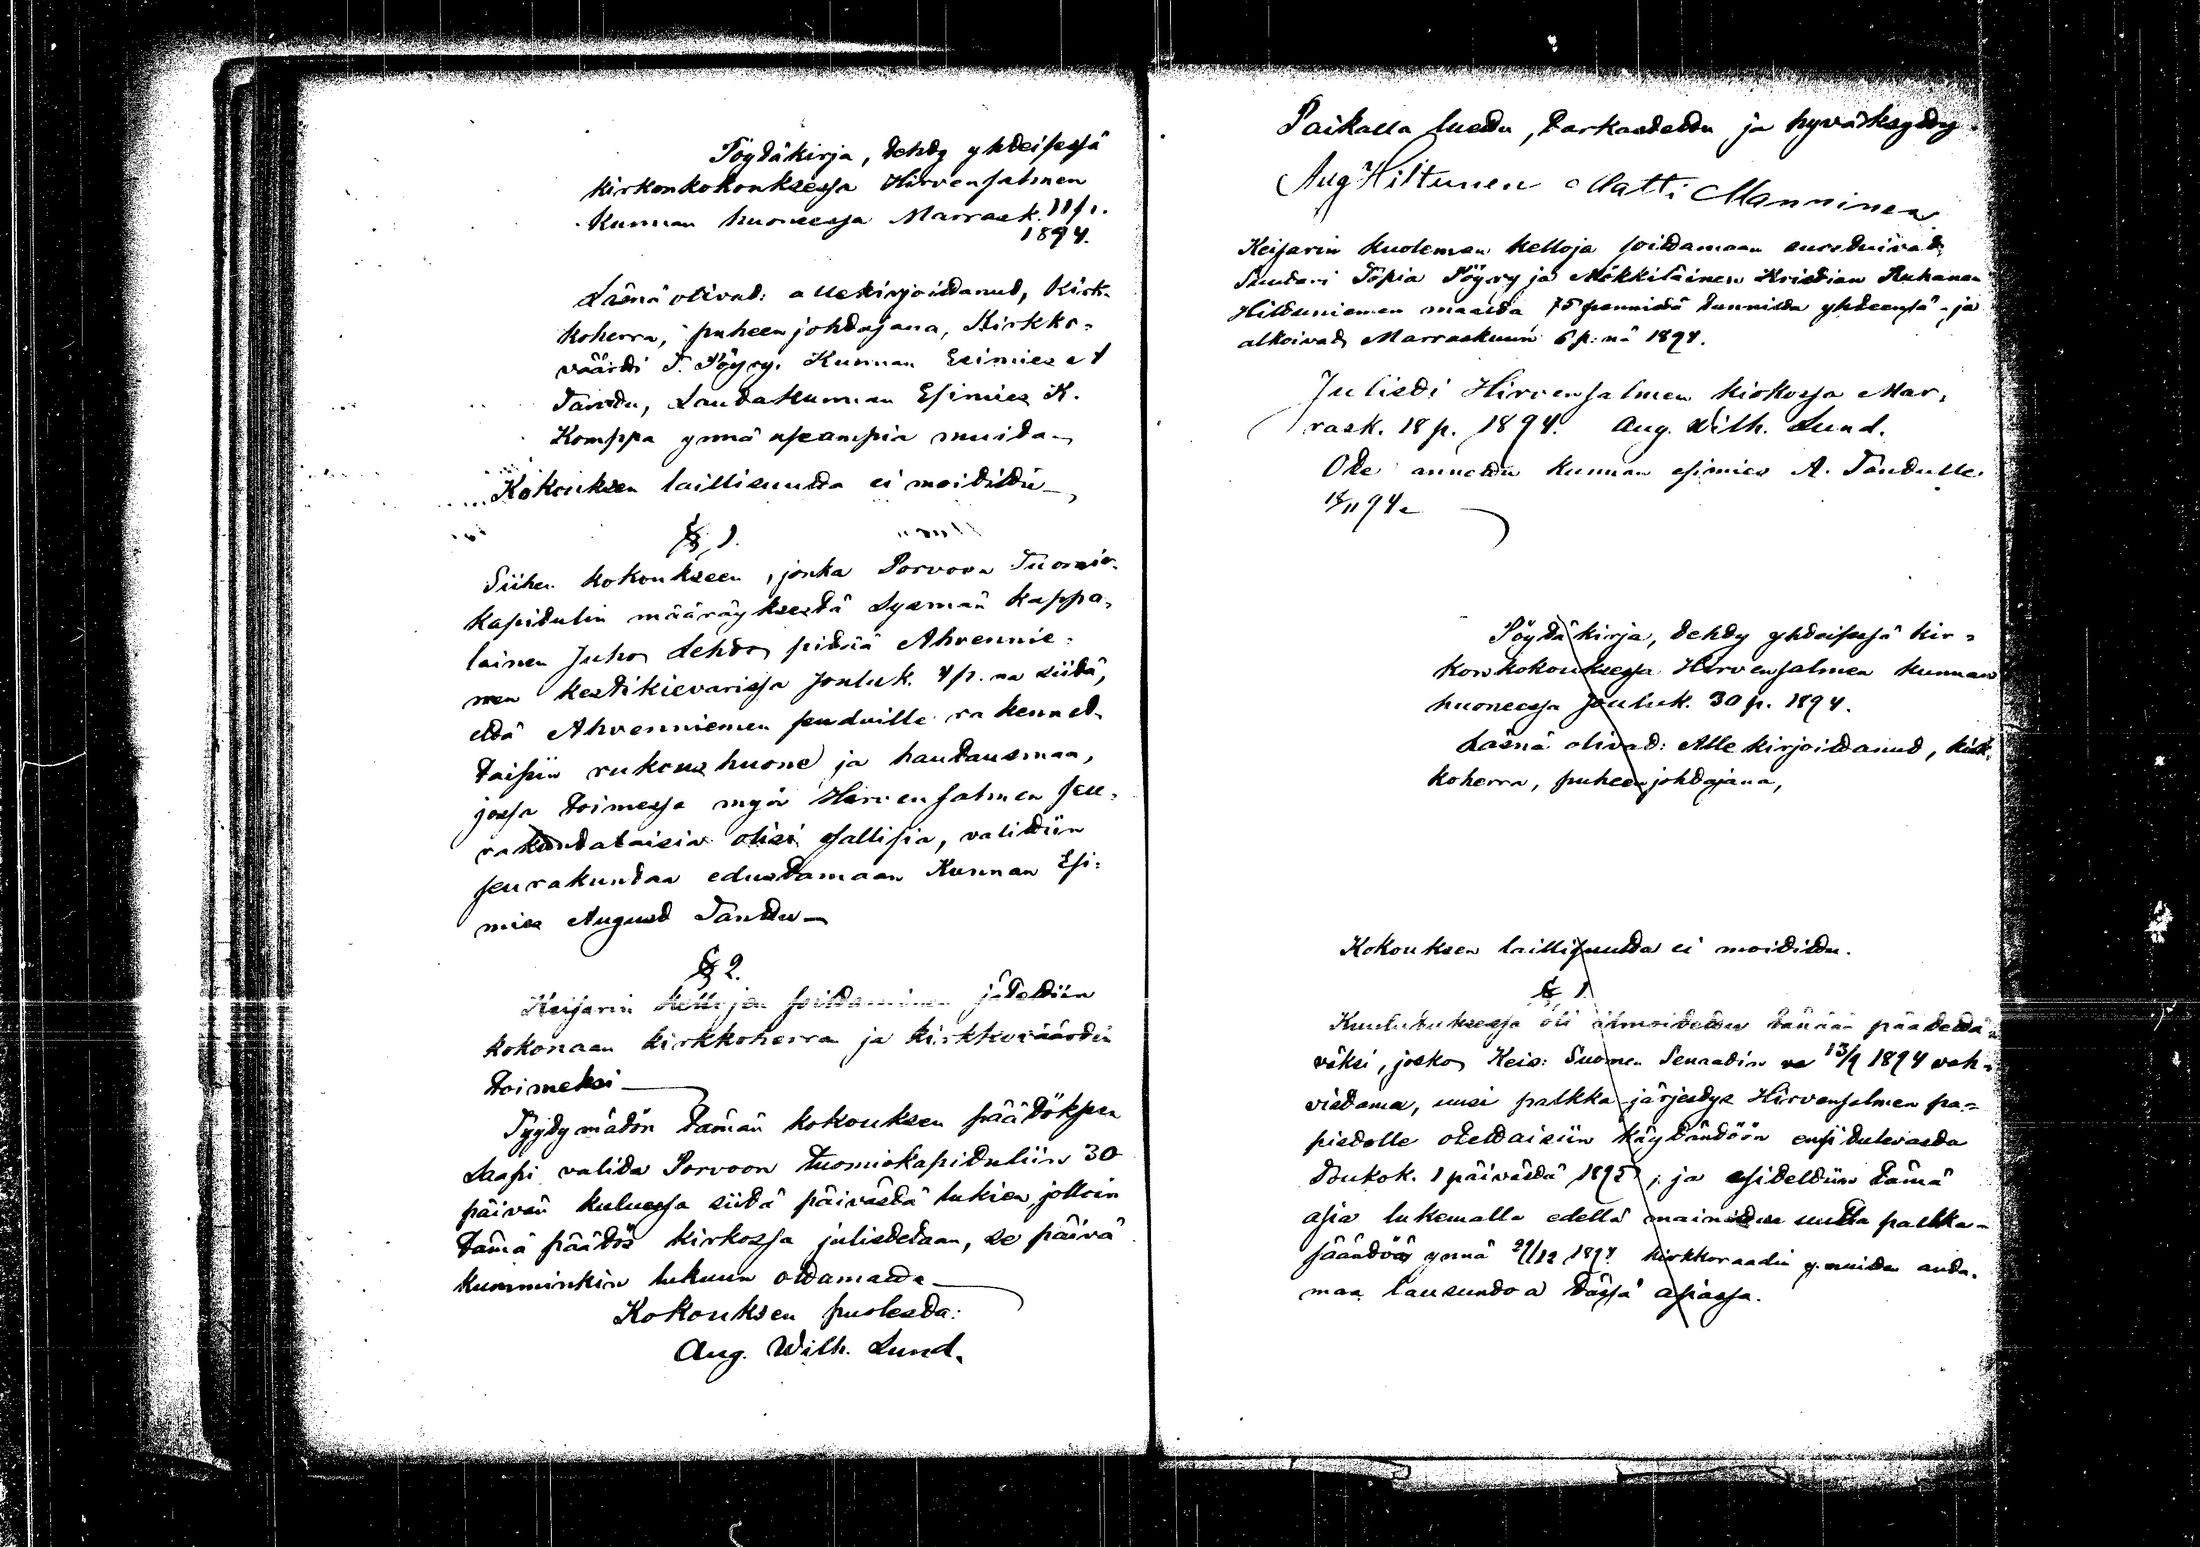 Pöytäkirja, tehty yhteisessä
kirkonkokouksessa Hirvensalmen
Kunnan huoneessa Marrask. 11 p.
1894.
Läsnä olivat: allekirjoittanut, Kirk-
koherra, puheenjohtajana, Kirkko-
väärti T. Pöyry, Kunnan Esimies A
Tanttu, Lautakunnan Esimies K.
Komppa ynnä useampia muita
Kokouksen laillisuutta ei moitittu
§ 1.
Siihen kokoukseen, jonka Porvoon Tuomio-
kapitulin määräyksestä Sysmän kappa-
lainen Juho Lehto pitää Ahvennie-
men kestikievarissa Jouluk. 4 p. na siitä,
että Ahvenniemen seuduille rakennet-
taisiin rukoushuone ja hautausmaa,
jossa toimessa myös Hirvensalmen seu-
rakuntalaisia olisi osallisia, valittiin
seurakuntaa edustamaan Kunnan Esi-
mies August Tanttu
§ 2.
Keisarin kellojen soittaminen jätettiin
kokonaan kirkkoherra ja kirkkoväärdin
toimeksi
Tyytymätön tämän kokouksen päätöksen
saapi valittaa Porvoon tuomiokapituliin 30
päivän kuluessa siitä päivästä lukien, jolloin
tämä päätös kirkossa julistetaan, se päivä
kumminkin lukuun ottamatta
Kokouksen puolesta:
Aug. Wilh. Lund.
Paikalla luettu, tarkastettu ja hyväksytty.
Aug Hiltunen Matti Manninen
Keisarin kuoleman kelloja soittamaan suostuivat
Suutari Topia Pöyry ja Mökkiläinen Kristian Ruhanen
Hiltuniemen maalta 75 penniä tunnilta yhteensä - ja
alkoivat Marraskuun 6 p:nä 1894.
Julisti Hirvensalmen kirkossa Mar-
rask. 18 p. 1894. Aug. Wilh. Lund.
Ote annettu kunnan esimies A. Tantulle
18/11 94
Pöytäkirja, tehty yhteisessä kir-
konkokouksessa Hirvensalmen kunnan
huoneessa Jouluk. 30 p. 1894.
Läsnä olivat: Allekirjoittanut, kirk-
koherra, puheenjohtajana,
Kokouksen laillisuutta ei moitittu.
§ 1
Kuulutuksessa oli ilmoitettu tänään päätettä-
väksi, josko Keis: Suomen Senaatin 13/9 1894 vah-
vistama, uusi palkka-järjestys Hirvensalmen pa-
pistolle otettaisiin käytäntöön ensi tulevasta
Toukok. 1 päivästä 1895; ja esitettiin tämä
asia lukemalla edellä mainittu uutta palkka-
sääntöä ynnä 29/12 1894 kirkkoraadin y. muita anta-
maa lausuntoa tässä asiassa.